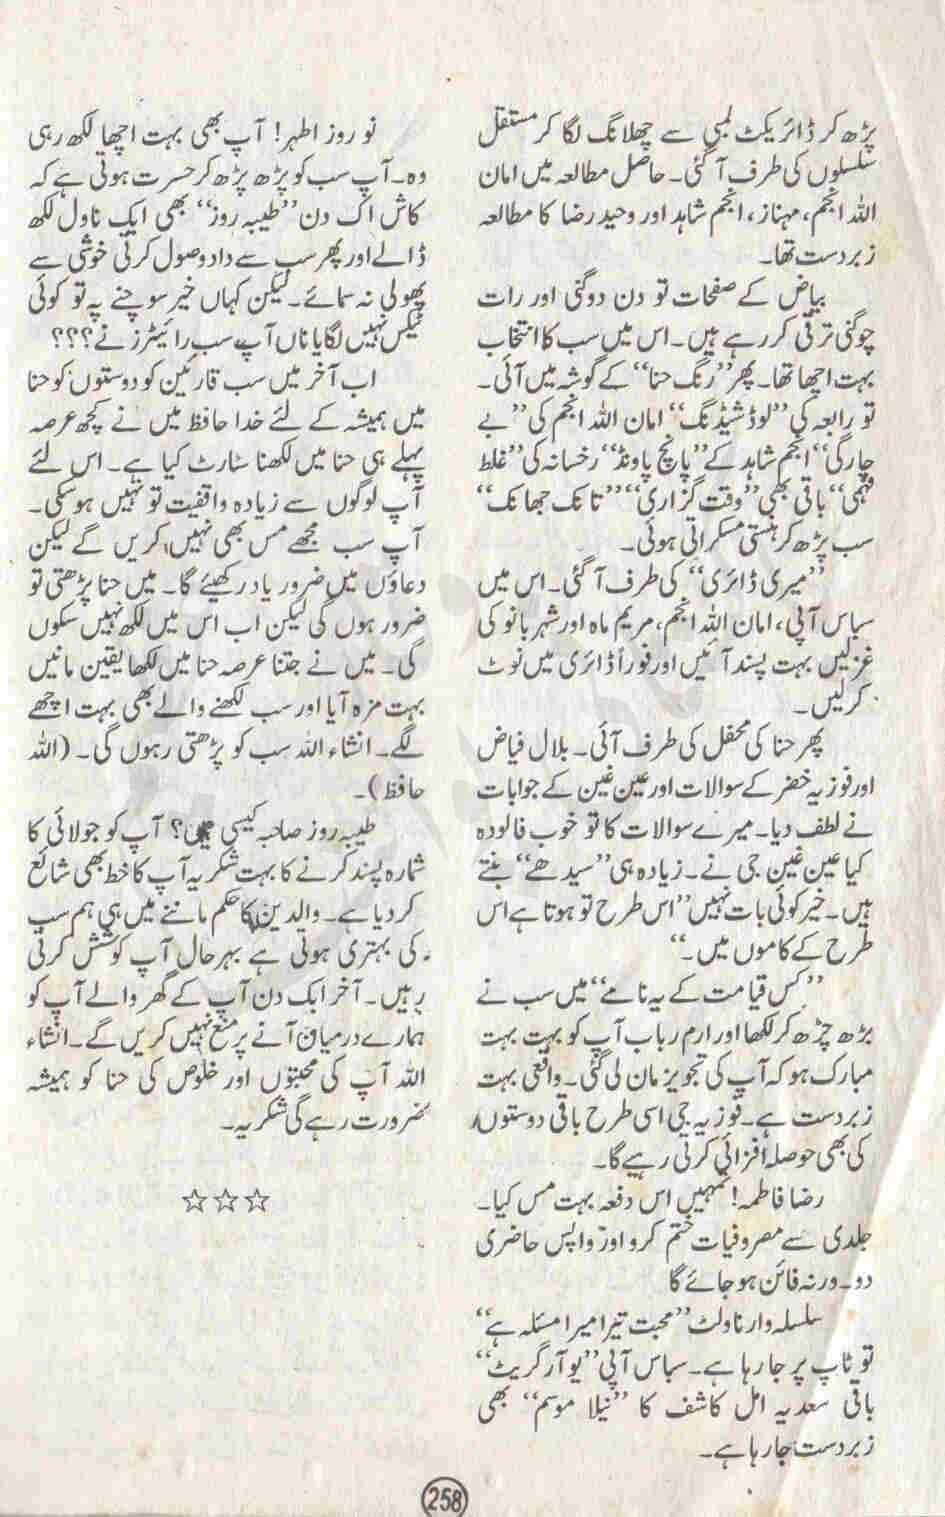 پڑھ کر ڈائریکٹ لمبی سے چھلانگ لگا کر مستقل
سلسلوں کی طرف آ گئی۔ حاصل مطالعہ میں امان
اللہ انجم، مہناز، انجم شاہد اور وحید رضا کا مطالعہ
زبردست تھا۔
بیاض کے صفحات تو دن دوگنی اور رات
چوگنی ترقی کر رہے ہیں۔ اس میں سب کا انتخاب
بہت اچھا تھا۔ پھر ”رنگ حنا“ کے گوشہ میں آئی۔
تو رابعہ کی ”لوڈشیڈنگ“ امان اللہ انجم کی ”بے
چارگی“ انجم شاہد کے ”پانچ پاونڈ“ رخسانہ کی ”غلط
فہمی“ باقی بھی ”وقت گزاری“ ”تانک جھانک“
سب پڑھ کر ہنستی مسکراتی ہوئی۔
”میری ڈائری“ کی طرف آ گئی۔ اس میں
سباس آپی، امان اللہ انجم، مریم ماہ اور شہر بانو کی
غزلیں بہت پسند آئیں اور فوراً ڈائری میں نوٹ
کر لیں۔
پھر حنا کی محفل کی طرف آئی۔ بلال فیاض
اور فوزیہ خضر کے سوالات اور عین غین کے جوابات
نے لطف دیا۔ میرے سوالات کا تو خوب فالودہ
کیا عین غین جی نے۔ زیادہ ہی ”سیدھے“ بنتے
ہیں۔ خیر کوئی بات نہیں ”اس طرح تو ہوتا ہے اس
طرح کے کاموں میں۔“
”کس قیامت کے یہ نامے“ میں سب نے
بڑھ چڑھ کر لکھا اور ارم رباب آپ کو بہت بہت
مبارک ہو کہ آپ کی تجویز مان لی گئی۔ واقعی بہت
زبردست ہے۔ فوزیہ جی اسی طرح باقی دوستوں
کی بھی حوصلہ افزائی کرتی رہیے گا۔
رضا فاطمہ! تمہیں اس دفعہ بہت مس کیا۔
جلدی سے مصروفیات ختم کرو اور واپس حاضری
دو۔ ورنہ فائن ہو جائے گا
سلسلہ وار ناولٹ ”محبت تیرا میرا مسئلہ ہے“
تو ٹاپ پر جا رہا ہے۔ سباس آپی ”یو آر گریٹ“
باقی سعدیہ امل کاشف کا ”نیلا موسم“ بھی
زبردست جا رہا ہے۔
نو روز اطہر! آپ بھی بہت اچھا لکھ رہی
وہ۔ آپ سب کو پڑھ پڑھ کر حسرت ہوتی ہے کہ
کاش اک دن ”طیبہ روز“ بھی ایک ناول لکھ
ڈالے اور پھر سب سے داد وصول کرتی خوشی سے
پھولی نہ سمائے۔ لیکن کہاں خیر سوچنے پہ تو کوئی
ٹیکس نہیں لگایا ناں آپ سب رائیٹرز نے؟؟؟
اب آخر میں سب قارئین کو دوستوں کو حنا
میں ہمیشہ کے لئے خدا حافظ میں نے کچھ عرصہ
پہلے ہی حنا میں لکھنا سٹارٹ کیا ہے۔ اس لئے
آپ لوگوں سے زیادہ واقفیت تو نہیں ہو سکی۔
آپ سب مجھے مس بھی نہیں کریں گے لیکن
دعاؤں میں ضرور یاد رکھئیے گا۔ میں حنا پڑھتی تو
ضرور ہوں گی لیکن اب اس میں لکھ نہیں سکوں
گی۔ میں نے جتنا عرصہ حنا میں لکھا یقین مانیں
بہت مزہ آیا اور سب لکھنے والے بھی بہت اچھے
لگے۔ انشاء اللہ سب کو پڑھتی رہوں گی۔ (اللہ
حافظ)۔
طیبہ روز صاحبہ کیسی ہیں؟ آپ کو جولائی کا
شمارہ پسند کرنے کا بہت شکریہ آپ کا خط بھی شائع
کر دیا ہے۔ والدین کا حکم ماننے میں ہی ہم سب
کی بہتری ہوتی ہے بہرحال آپ کوشش کرتی
رہیں۔ آخر ایک دن آپ کے گھر والے آپ کو
ہمارے درمیان آنے پر منع نہیں کریں گے۔ انشاء
اللہ آپ کی محبتوں اور خلوص کی حنا کو ہمیشہ
ضرورت رہے گی شکریہ۔
☆☆☆
258